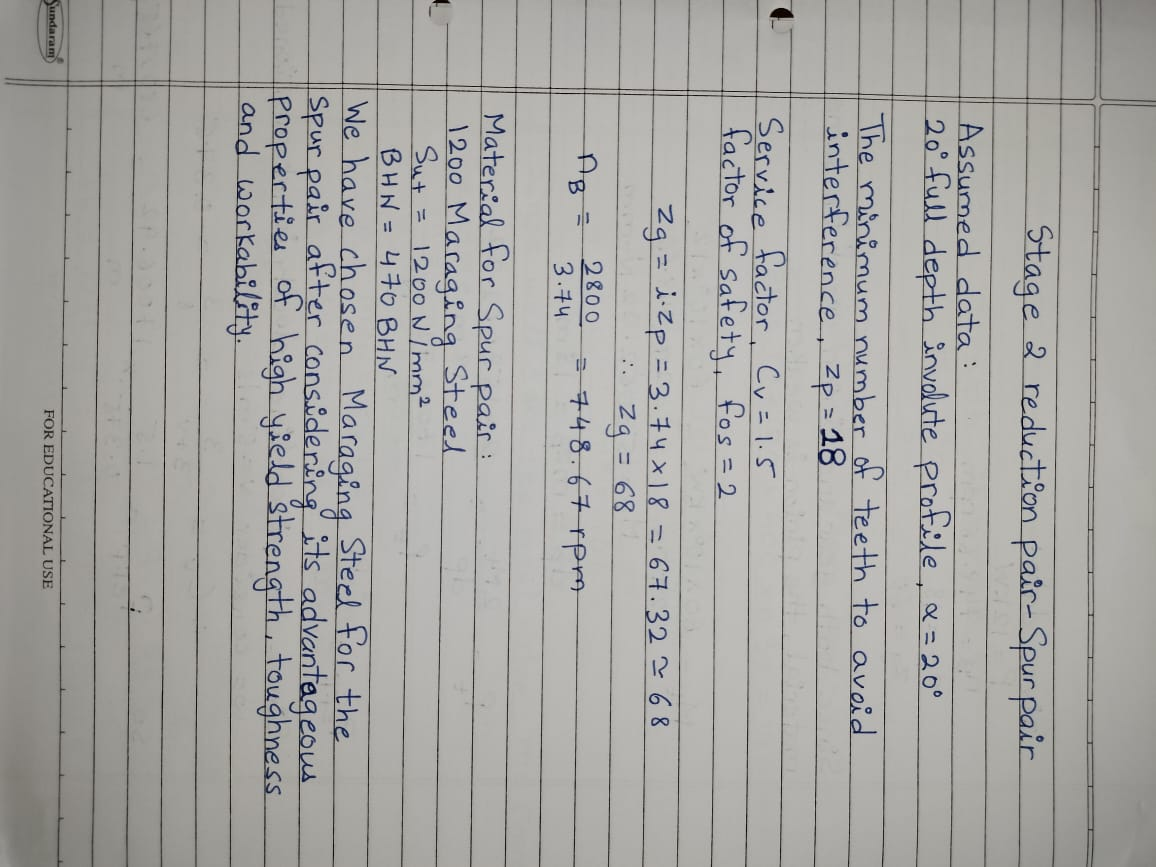 Stage 2 reduction pair- Spur pair
Assumed data:
20° full depth involute profile, α = 20°
The minimum number of teeth to avoid
interference, zp = 18
Service factor, Cv = 1.5
factor of safety, fos = 2
zg = i.zp = 3.74 x 18 = 67.32 ≃ 68
∴ zg = 68
nB = 2800 / 3.74 = 748.67 rpm
Material for Spur pair:
1200 Maraging Steel
Sut = 1200 N/mm²
BHN = 470 BHN
We have chosen Maraging Steel for the
spur pair after considering its advantageous
properties of high yield strength, toughness
and workability.
Sundaram®
FOR EDUCATIONAL USE